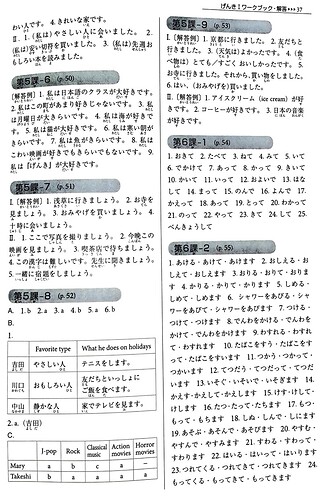 げんきⅠワークブック・解答●●●37
わい人です。 4. きれいな家です。
Ⅱ. 1. (私は)やさしい人に会いました。 2.
(私は)安い切符を買いました。 3. (私は)先週お
もしろい本を読みました。
第5課-6 (p. 50)
〔解答例〕 1. 私は日本語のクラスが大好きです。
2. 私はこの町があまり好きじゃないです。 3. 私
は月曜日が大きらいです。 4. 私は海が好きで
す。 5. 私は猫が大好きです。 6. 私は寒い朝が
きらいです。 7. 私は魚がきらいです。 8. 私は
こわい映画が好きでもきらいでもないです。 9.
私は『げんき』が大好きです。
第5課-7 (p. 51)
Ⅰ. 〔解答例〕 1. 浅草に行きましょう。 2. お寺を
見ましょう。 3. おみやげを買いましょう。 4.
十時に会いましょう。
Ⅱ. 1. ここで写真を撮りましょう。 2. 今晩この
映画を見ましょう。 3. 喫茶店で待ちましょう。
4. この漢字は難しいです。先生に聞きましょう。
5. 一緒に宿題をしましょう。
第5課-8 (p. 52)
A. 1. b 2. a 3. a 4. b 5. a 6. b
B.
1.
Favorite type What he does on holidays
吉田 やさしい人 テニスをします。
川口 おもしろい人 友だちといっしょにご飯を食べます。
中山 静かな人 家でテレビを見ます。
2. a. (吉田)
C.
J-pop Rock Classical music Action movies Horror movies
Mary a b c a –
Takeshi b a a a c
第5課-9 (p. 53)
Ⅰ. 〔解答例〕 1. 京都に行きました。 2. 友だちと
行きました。 3. 天気はよかったです。 4. (食
べ物は)とても/すごくおいしかったです。 5.
お寺に行きました。それから、買い物をしました。
6. はい、(おみやげを)買いました。
Ⅱ. 〔解答例〕 1. アイスクリーム (ice cream) が好
きです。 2. コーヒーが好きです。 3. 日本の音楽
が好きです。
第6課-1 (p. 54)
1. おきて 2. たべて 3. ねて 4. みて 5. いて
6. でかけて 7. あって 8. かって 9. きいて
10. かいて 11. いって 12. およいで 13. はな
して 14. まって 15. のんで 16. よんで 17.
かえって 18. あって 19. とって 20. わかって
21. のって 22. やって 23. きて 24. して 25.
べんきょうして
第6課-2 (p. 55)
1. あける・あけて・あけます 2. おしえる・お
しえて・おしえます 3. おりる・おりて・おりま
す 4. かりる・かりて・かります 5. しめる・
しめて・しめます 6. シャワーをあびる・シャ
ワーをあびて・シャワーをあびます 7. つける・
つけて・つけます 8. でんわをかける・でんわを
かけて・でんわをかけます 9. わすれる・わすれ
て・わすれます 10. たばこをすう・たばこをす
って・たばこをすいます 11. つかう・つかって・
つかいます 12. てつだう・てつだって・てつだ
います 13. いそぐ・いそいで・いそぎます 14.
かえす・かえして・かえします 15. けす・けして・
けします 16. たつ・たって・たちます 17. もつ・
もって・もちます 18. しぬ・しんで・しにます
19. あそぶ・あそんで・あそびます 20. やすむ・
やすんで・やすみます 21. すわる・すわって・
すわります 22. はいる・はいって・はいります
23. つれてくる・つれてきて・つれてきます 24.
もってくる・もってきて・もってきます